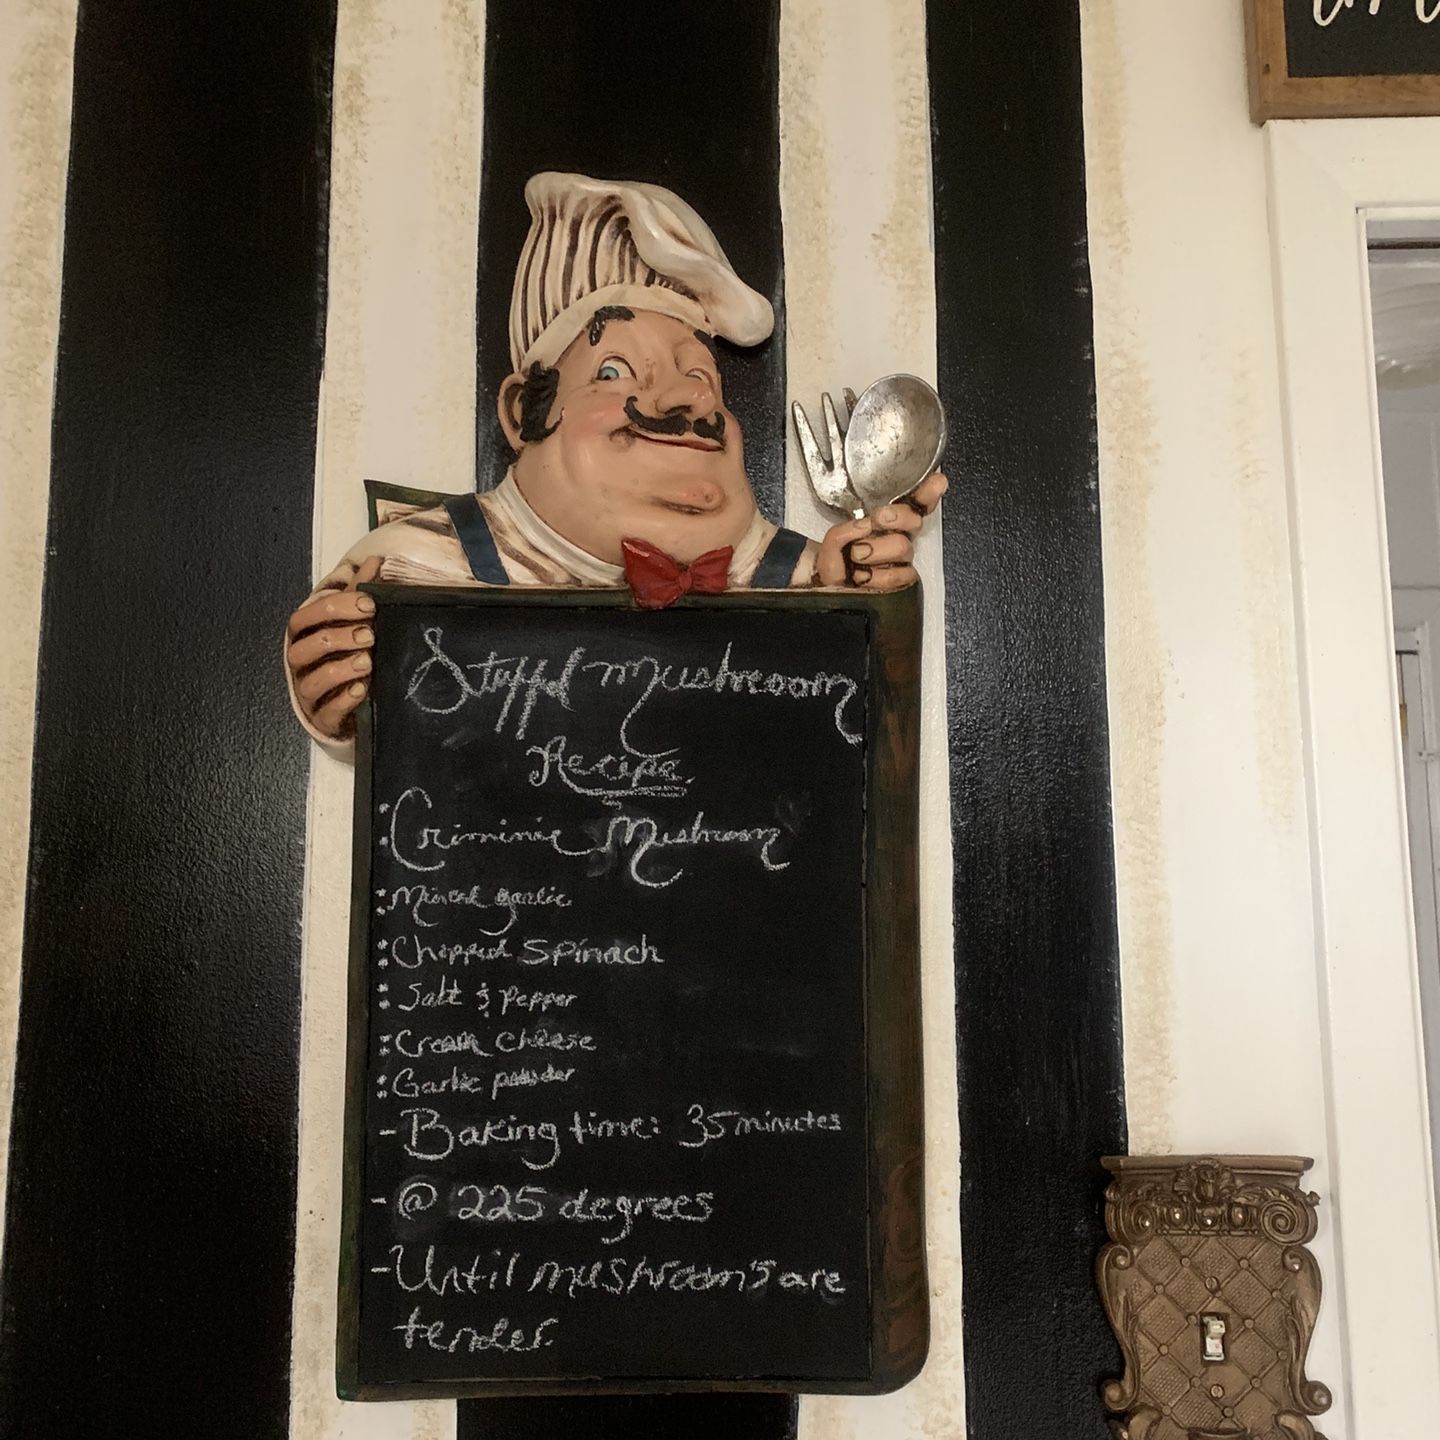 Stuffed mushroom
Recipe
: Criminie Mushroom
: Minced garlic
: Chopped Spinach
: Salt & Pepper
: Cream cheese
: Garlic powder
- Baking time: 35 minutes
- @ 225 degrees
- Until mushroom's are
tender.